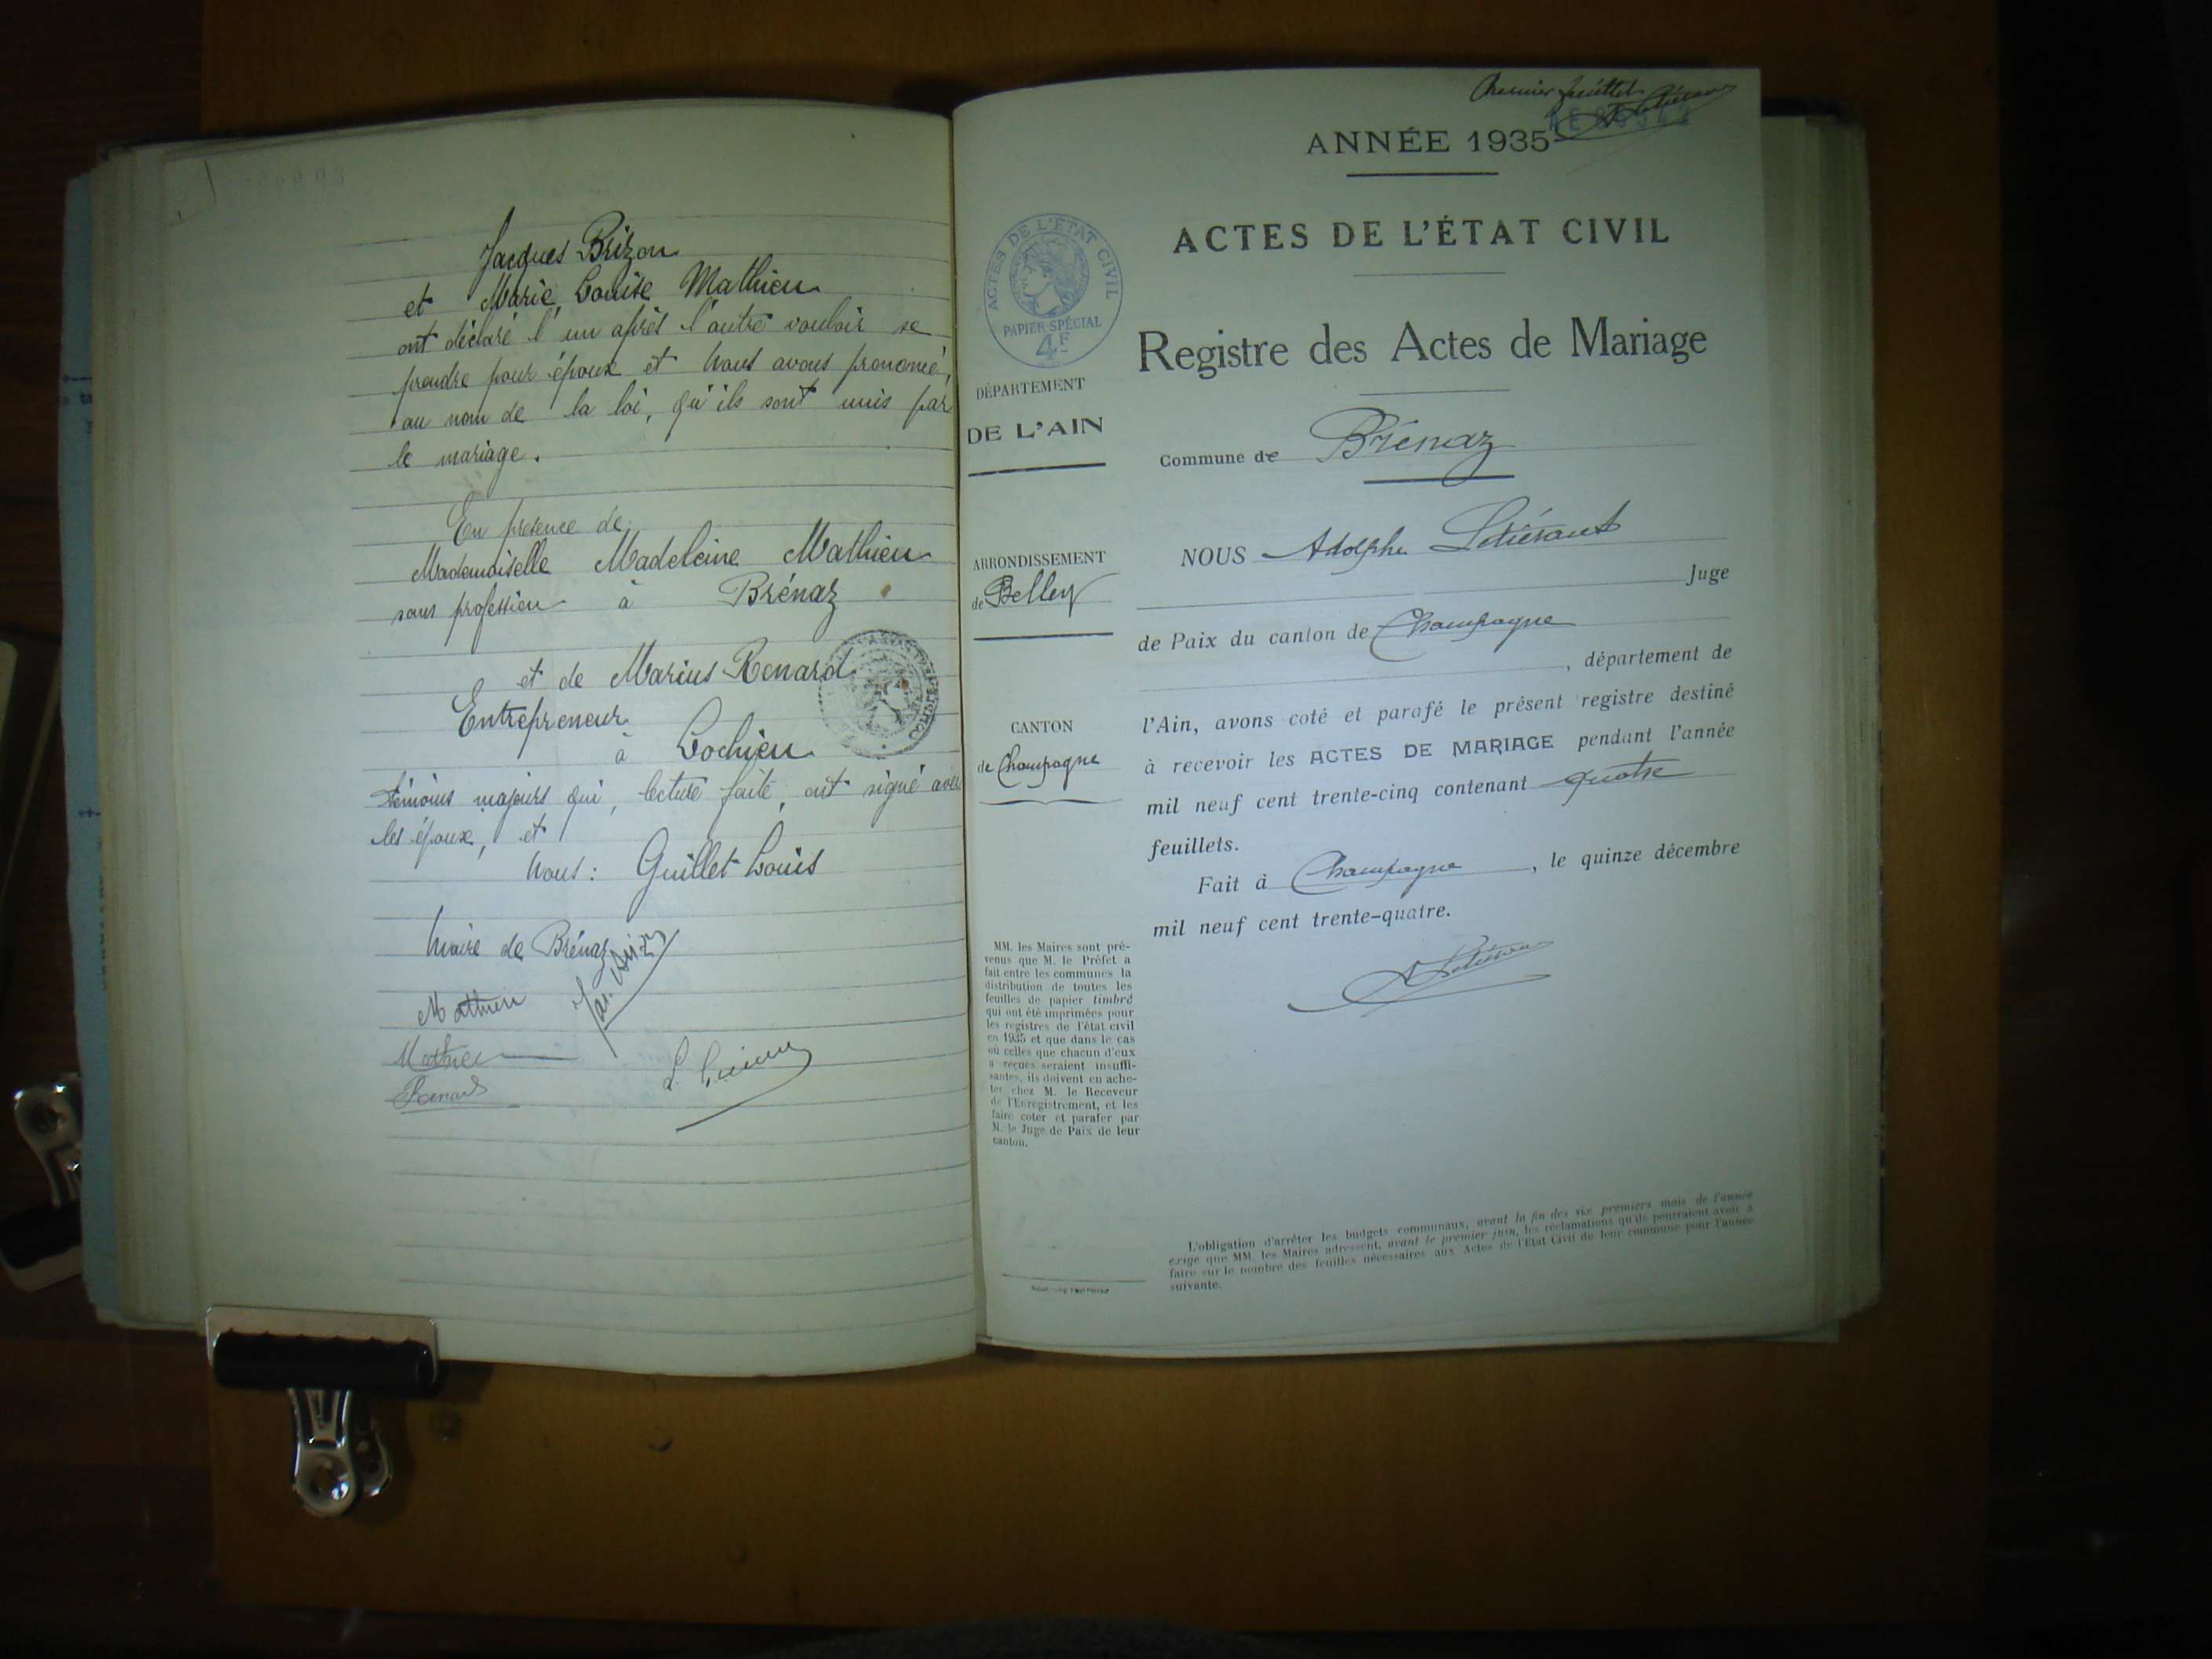 Jacques Brizon
et Marie Louise Mathieu
ont déclaré l'un après l'autre vouloir se
prendre pour époux et Nous avons prononcé,
au nom de la loi, qu'ils sont unis par
le mariage.
En présence de
Mademoiselle Madeleine Mathieu
sans profession à Brénaz
et de Marius Renard
Entrepreneur
à Lochieu
témoins majeurs qui, lecture faite, ont signé avec
les époux, et
Nous: Guillet Louis
Maire de Brénaz
Mathieu
Renard
Premier feuillet
ANNÉE 1935
ACTES DE L'ÉTAT CIVIL
ACTES DE L'ÉTAT CIVIL
PAPIER SPÉCIAL
4F
Registre des Actes de Mariage
DÉPARTEMENT
DE L'AIN
Commune de Brénaz
ARRONDISSEMENT
de Belley
CANTON
de Champagne
NOUS Adolphe
Juge
de Paix du canton de Champagne
, département de
l'Ain, avons coté et parafé le présent registre destiné
à recevoir les ACTES DE MARIAGE pendant l'année
mil neuf cent trente-cinq contenant quatre
feuillets.
Fait à Champagne, le quinze décembre
mil neuf cent trente-quatre.
MM. les Maires sont pré-
venus que M. le Préfet a
fait entre les communes la
distribution de toutes les
feuilles de papier timbré
qui ont été imprimées pour
les registres de l'état civil
en 1935 et que dans le cas
où celles que chacun d'eux
a reçues seraient insuffi-
santes, ils doivent en ache-
ter chez M. le Receveur
de l'Enregistrement, et les
faire coter et parafer par
M. le Juge de Paix de leur
canton.
L'obligation d'arrêter les budgets communaux, avant la fin des six premiers mois de l'année
exige que MM. les Maires adressent, avant le premier juin, les réclamations qu'ils pourraient avoir à
faire sur le nombre des feuilles nécessaires aux Actes de l'Etat Civil de leur commune pour l'année
suivante.